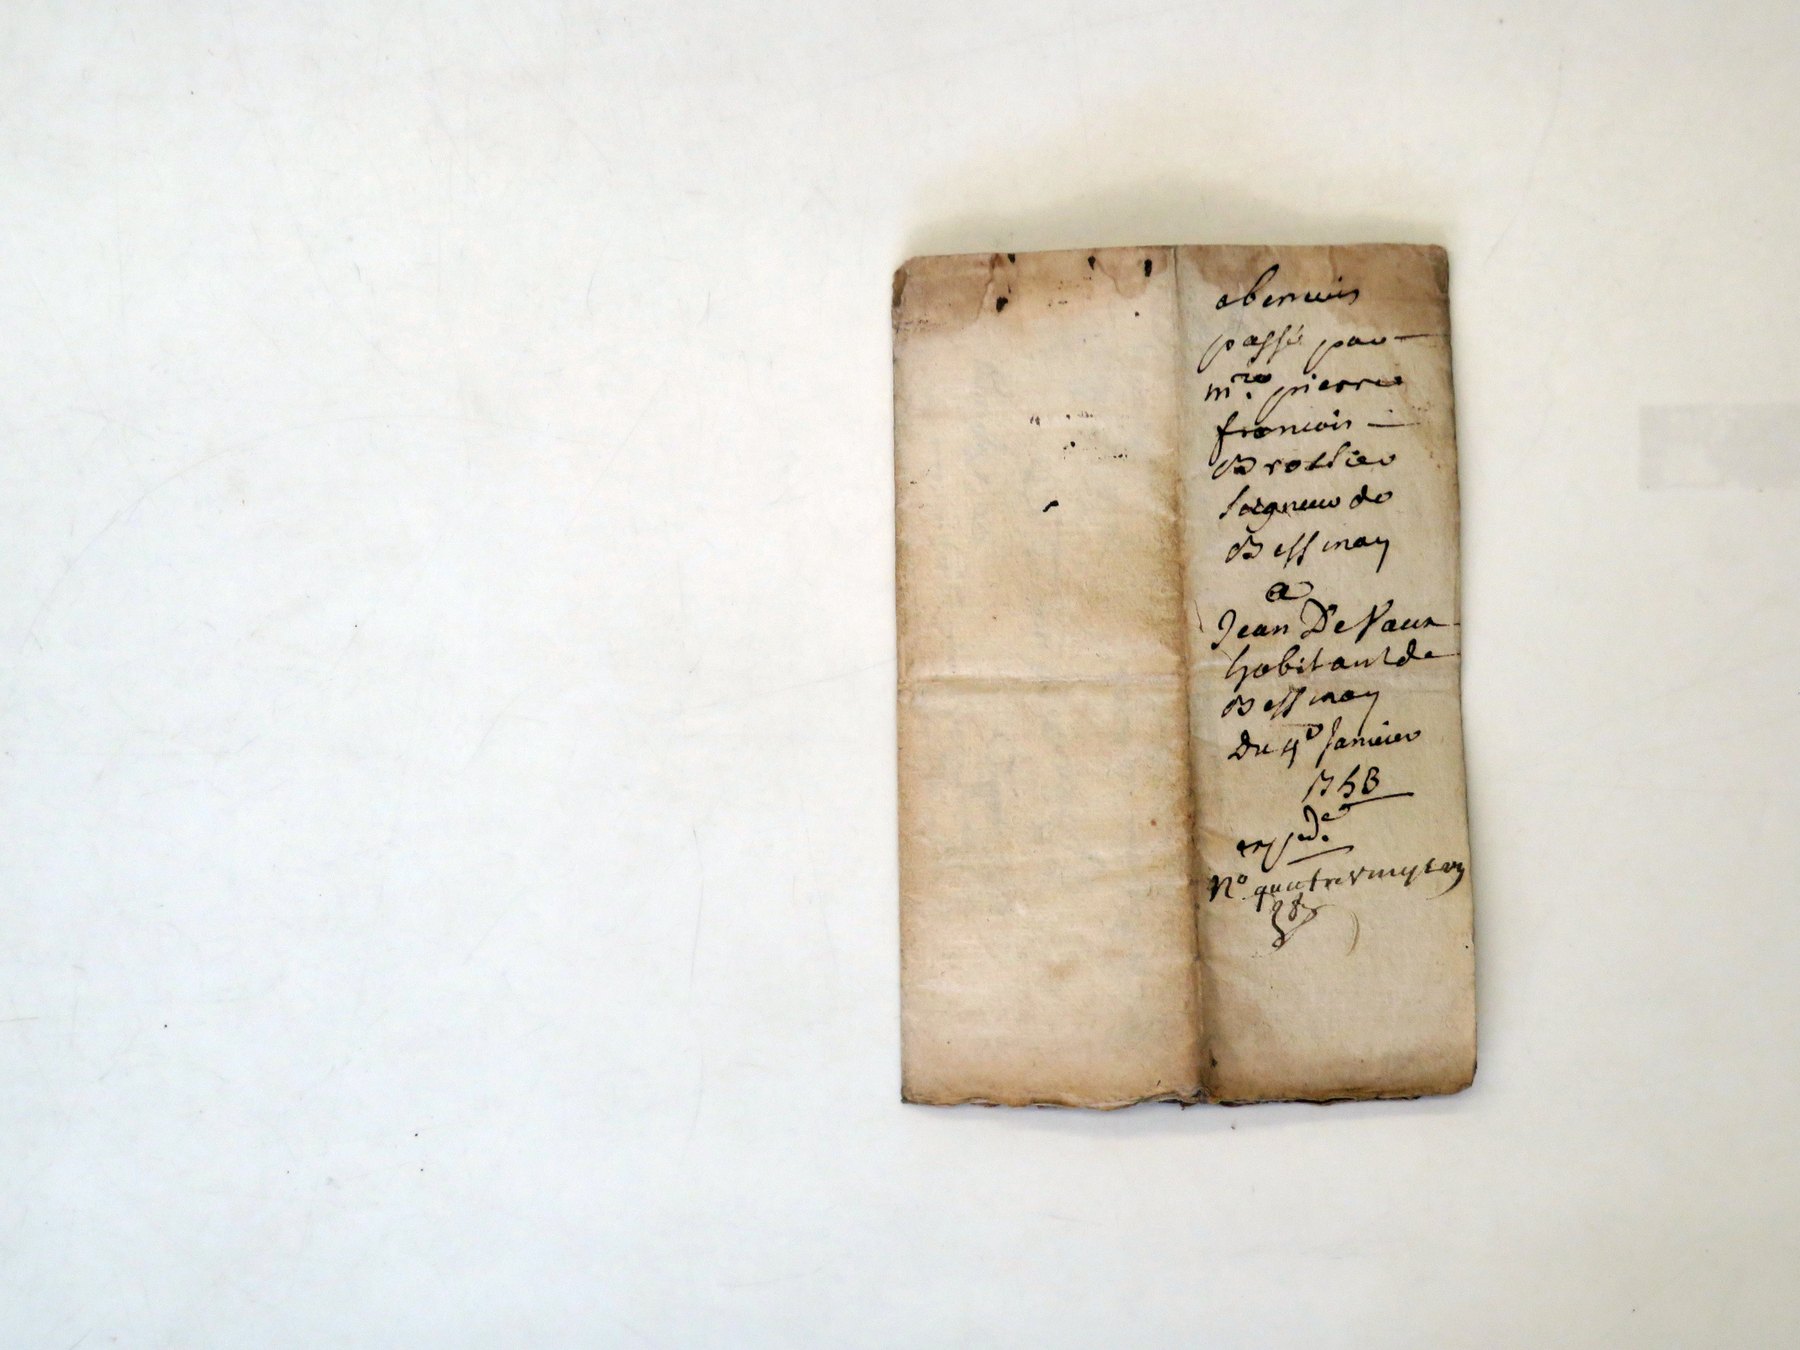 abenevis
passé par
m.re pierre
francois
Brossier
Seigneur de
Bessenay
a
Jean DeVaux
habitant de
Bessenay
Du 4e Janvier
expede.
No quatre vingt